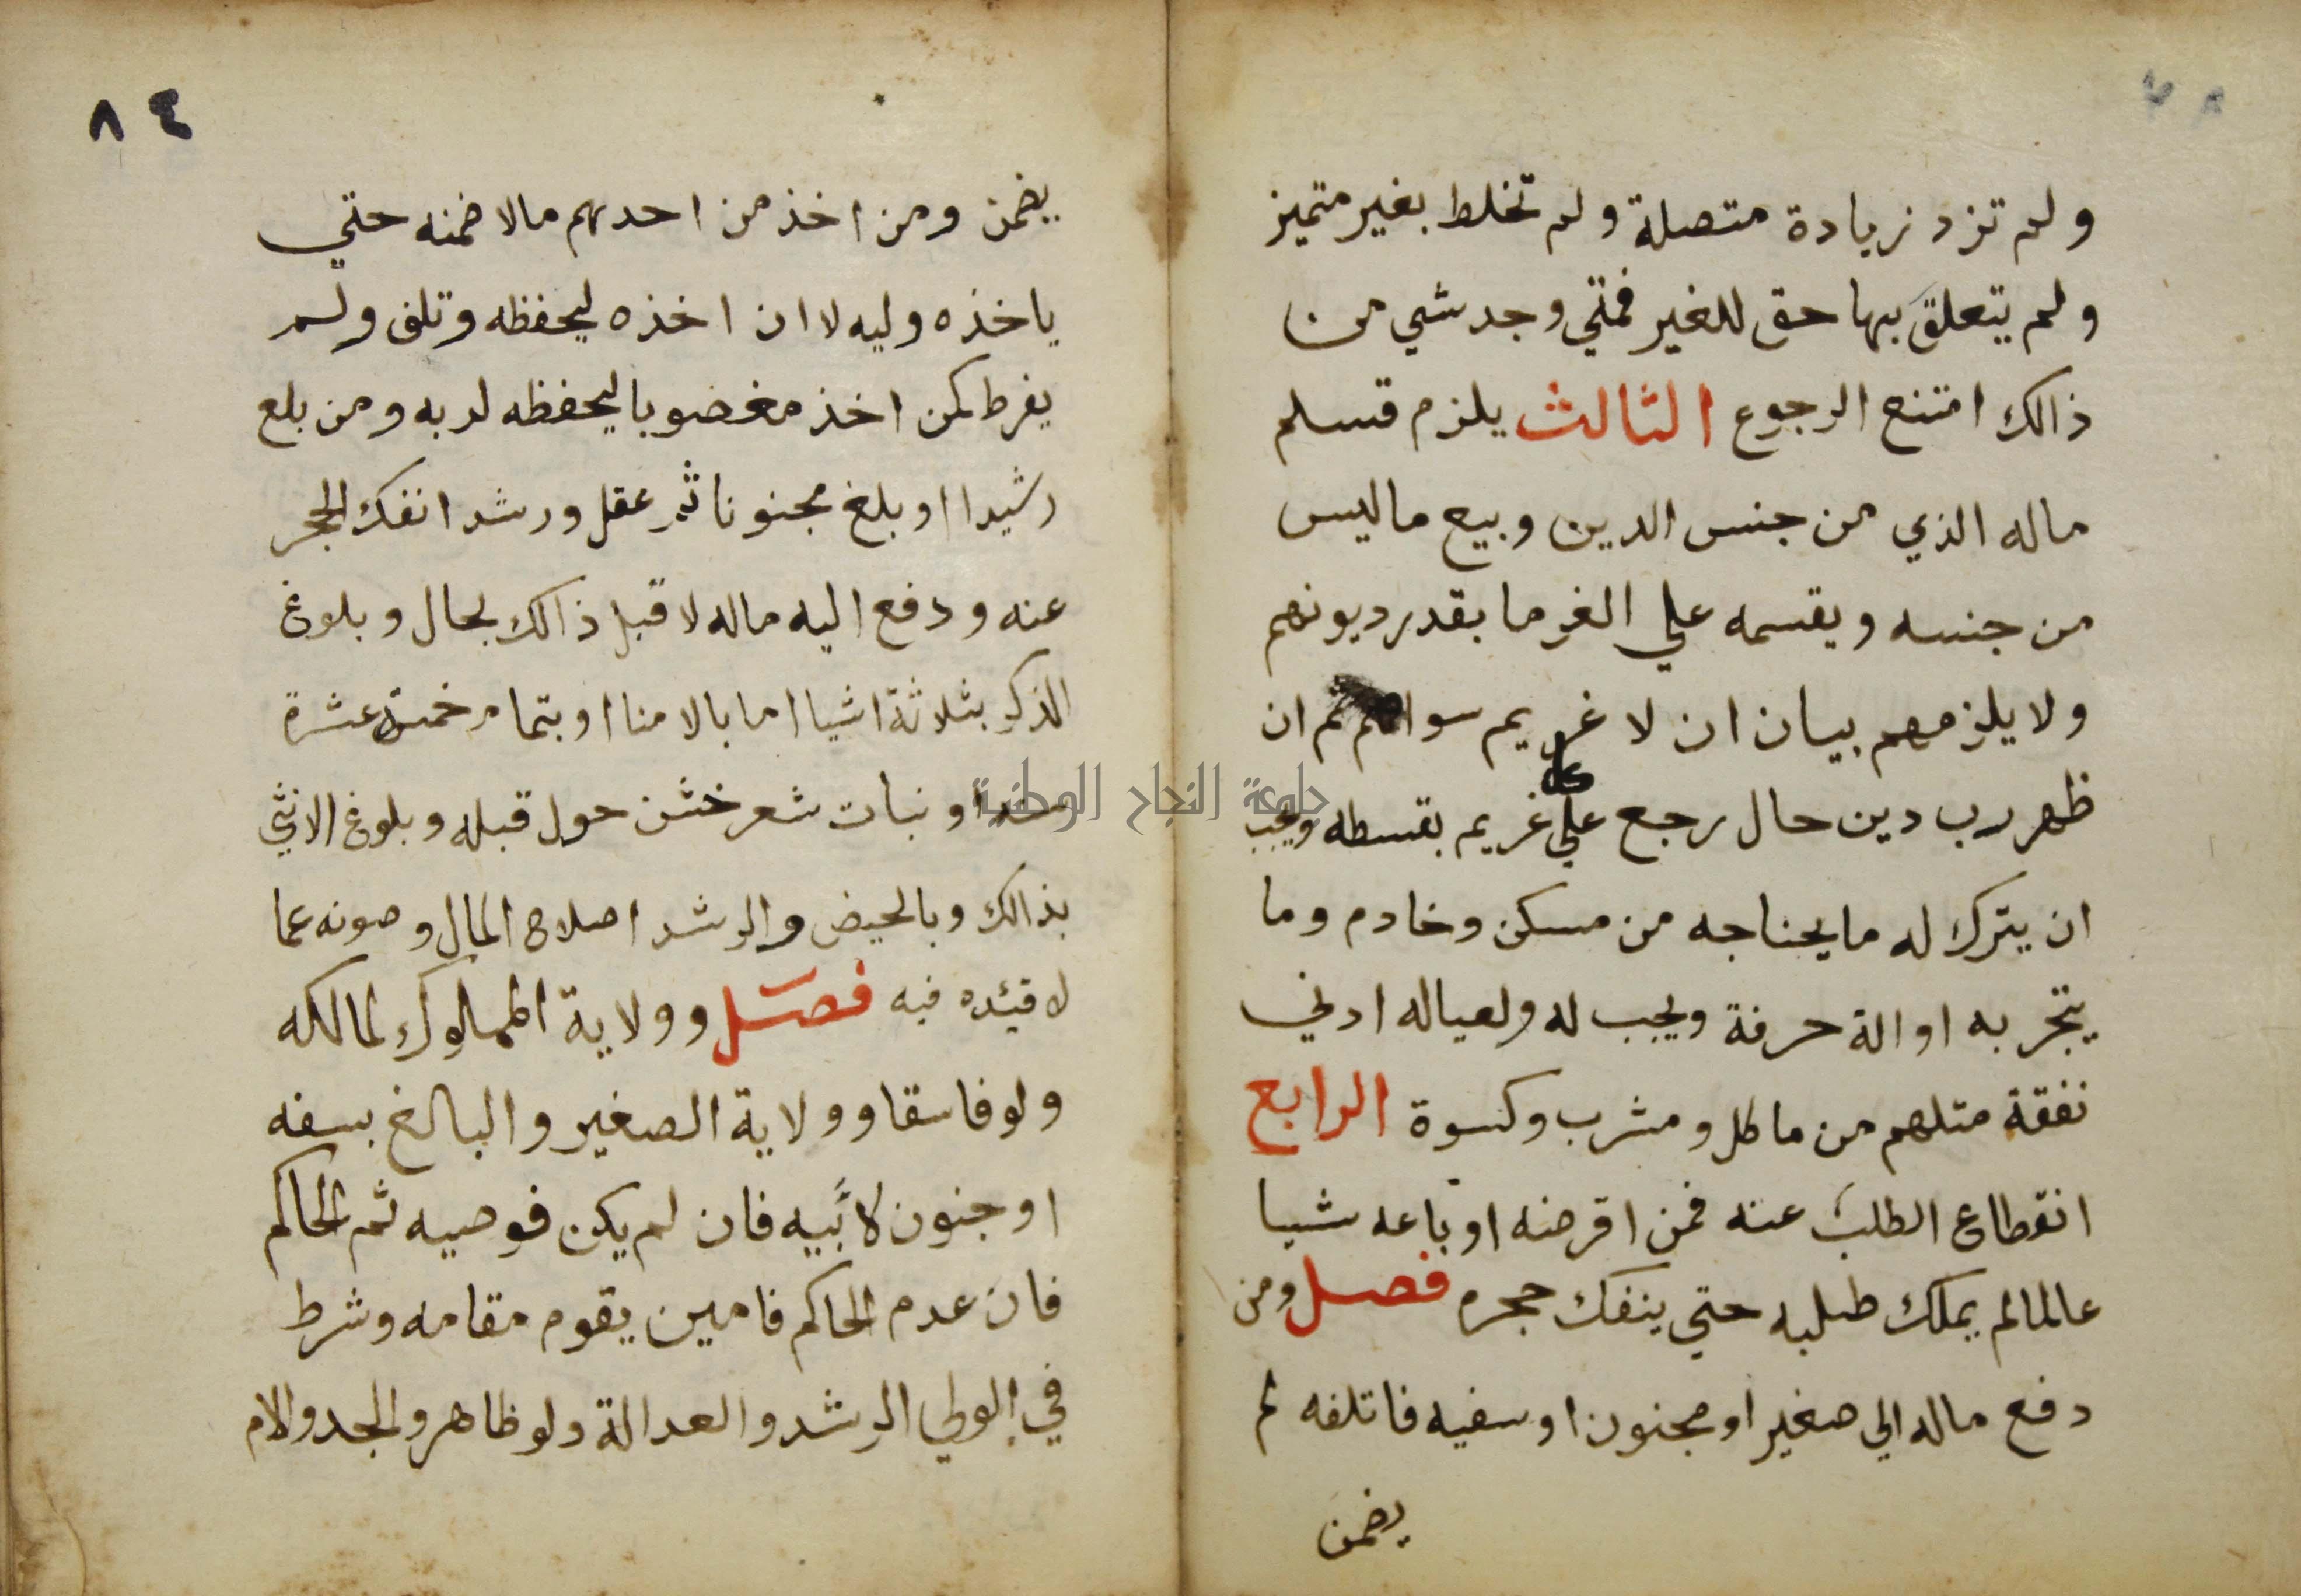 ولم تزد زيادة متصلة ولم تخلط بغير متميز
ولم يتعلق بها حق للغير فمتي وجد شي من
ذالك امتنع الرجوع الثالث يلزم قسلم
ماله الذي من جنس الدين وبيع ماليس
من جنسه ويقسمه علي الغرما بقدر ديونهم
ولا يلزمهم بيان ان لا غريم سواهم ثم ان
ظهر رب دين حال رجع علي كل غريم بقسطه ويجب
ان يترك له ما يحتاجه من مسكن وخادم وما
يتجر به او الة حرفة ويجب له ولعياله ادني
نفقة مثلهم من ماكل ومشرب وكسوة الرابع
انقطاع الطلب عنه فمن اقرضه او باعه شيا
عالمالم يملك طلبه حتي ينفك حجره فصل ومن
دفع ماله الي صغير او مجنون او سفيه فاتلفه لم
يضمن
٨٤
يضمن ومن اخذ من احدهم مالا ضمنه حتي
ياخذه وليه لا ان اخذه ليحفظه وتلف ولم
يفرط كمن اخذ مغصوبا ليحفظه لربه ومن بلغ
رشيدا او بلغ مجنونا ثم عقل ورشد انفك الحجر
عنه ودفع اليه ماله لا قبل ذالك بحال وبلوغ
الذكر بثلاثة اشيا اما بالامنا او بتمام خمسة عشرة
سنة او نبات شعر خشن حول قبله وبلوغ الانثي
بذالك وبالحيض والرشد اصلاح المال وصونه عما
لا فيئده فيه فصل وولاية المملوك لمالكه
ولو فاسقا وولاية الصغير والبالغ بسفه
او جنون لأبيه فان لم يكن فوصيه ثم الحاكم
فان عدم الحاكم فامين يقوم مقامه وشرط
في الولي الرشد والعدالة ولو ظاهر والجد والام
جامعة النجاح الوطنية